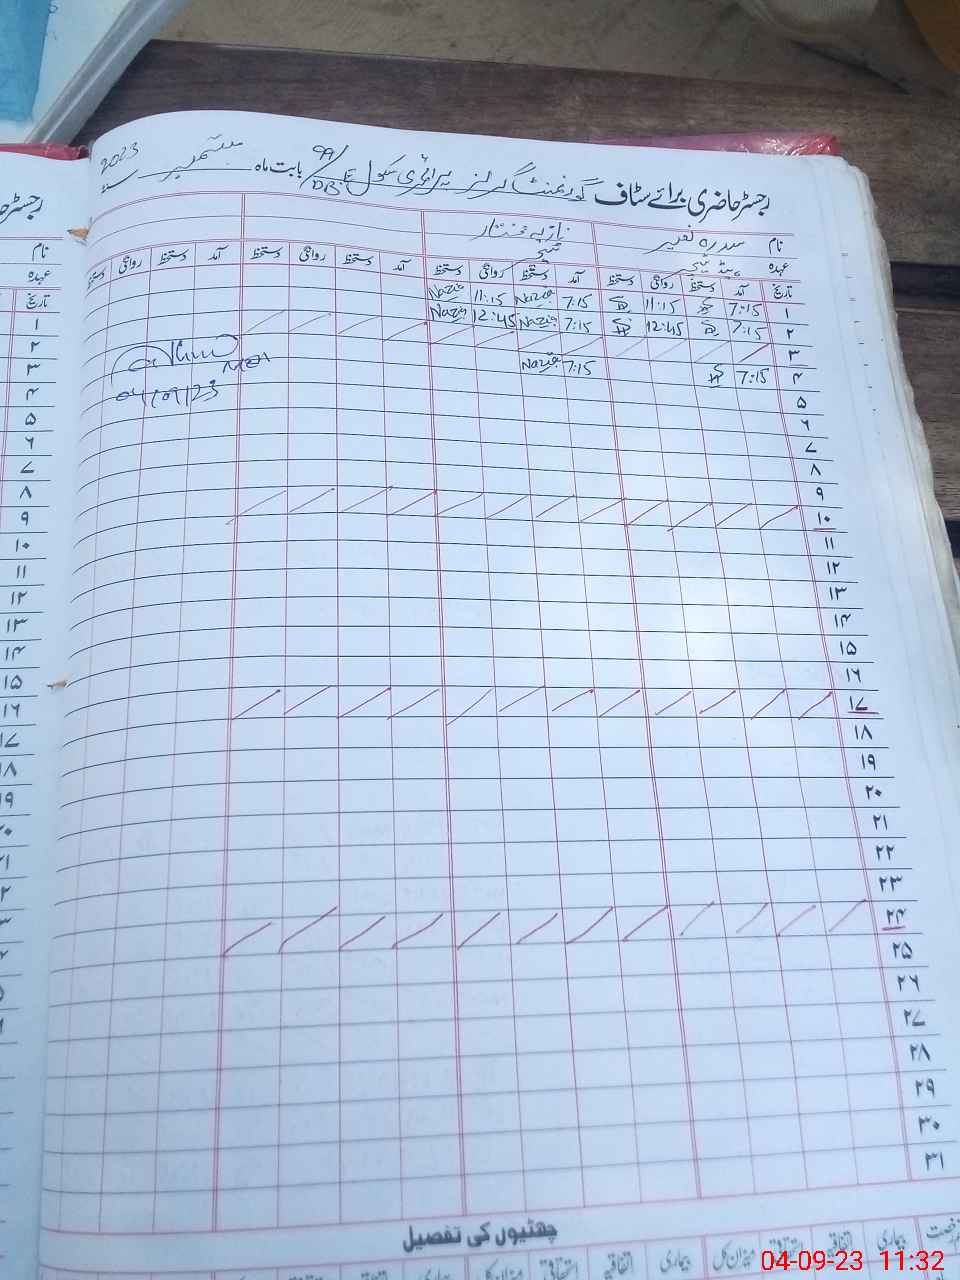 رجسٹر حاضری برائے سٹاف گورنمنٹ گرلز پرائمری سکول 99/DB.F بابت ماہ ستمبر سنہ 2023
نام سدرہ نصیر نازیہ مختار
عہدہ ہیڈ ٹیچر ٹیچر
تاریخ آمد دستخط روانگی دستخط آمد دستخط روانگی دستخط آمد دستخط روانگی دستخط آمد دستخط روانگی دستخط
۱ 7:15 11:15 7:15 Nazia 11:15 Nazia
۲ 7:15 12:45 7:15 Nazia 12:45 Nazia
۳
۴ 7:15 7:15 Nazia
04/09/23
۵
۶
۷
۸
۹
۱۰
۱۱
۱۲
۱۳
۱۴
۱۵
۱۶
۱۷
۱۸
۱۹
۲۰
۲۱
۲۲
۲۳
۲۴
۲۵
۲۶
۲۷
۲۸
۲۹
۳۰
۳۱
چھٹیوں کی تفصیل
رخصت بیماری اتفاقیہ استحقاقیہ میزان کل بیماری اتفاقیہ استحقاقیہ میزان کل
رجسٹر
نام
عہدہ
تاریخ
۱
۲
۳
۴
۵
۶
۷
۸
۹
۱۰
۱۱
۱۲
۱۳
۱۴
۱۵
۱۶
۱۷
۱۸
۱۹
04-09-23 11:32